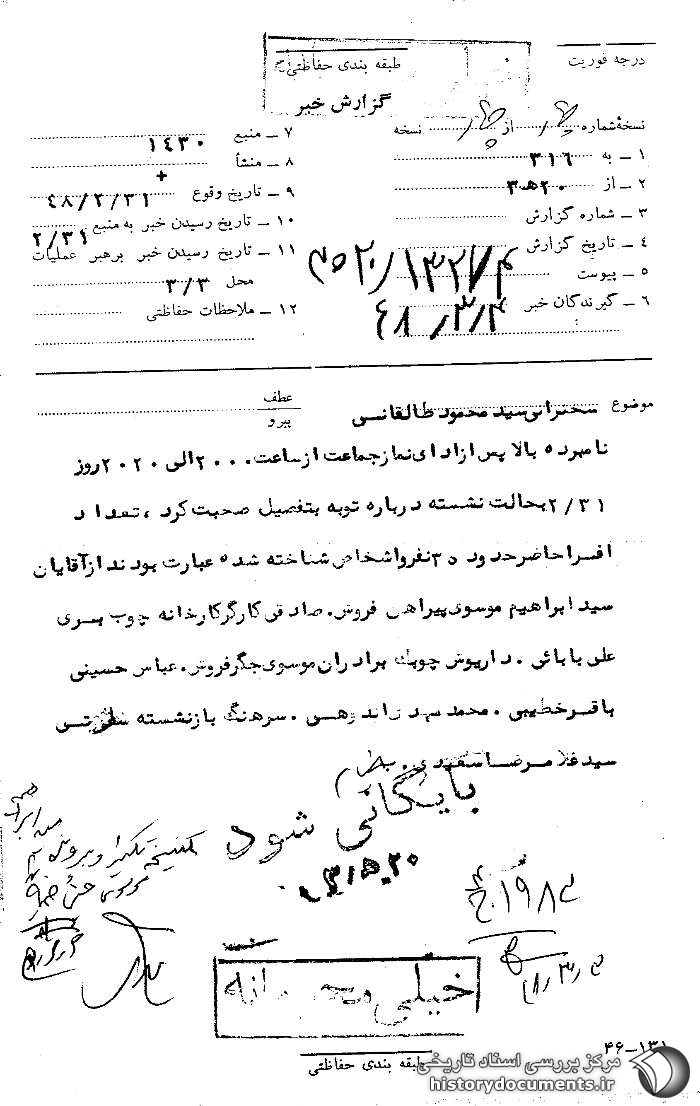 درجه فوریت
طبقه بندی حفاظتی
گزارش خبر
نسخهٔ شماره ... از ... نسخه
۱ ـ به ۳۱۶
۲ ـ از ۲۰ﻫ۳
۳ ـ شماره گزارش
۴ ـ تاریخ گزارش
۵ ـ پیوست
۶ ـ گیرندگان خبر
۴۸/۳/۴
۷ ـ منبع ۱۴۳۰
۸ ـ منشأ
+
۹ ـ تاریخ وقوع ۴۸/۲/۳۱
۱۰ ـ تاریخ رسیدن خبر به منبع ۲/۳۱
۱۱ ـ تاریخ رسیدن خبر برهبر عملیات
محل ۳/۳
۱۲ ـ ملاحظات حفاظتی
موضوع سخنرانی سید محمود طالقانی
عطف
پیرو
نامبرده بالا پس از ادای نماز جماعت از ساعت ۲۰۰۰ الی ۲۰۲۰ روز
۲/۳۱ بحالت نشسته درباره توبه بتفصیل صحبت کرد ، تعداد
افراد حاضر حدود ۳۵ نفر و اشخاص شناخته شده عبارت بودند از آقایان
سید ابراهیم موسوی پیراهن فروش . صادقی کارگر کارخانه چوب بری
علی بابائی . داریوش چوبک برادران موسوی جگر فروش . عباس حسینی
باقر خطیبی . محمد سرهنگ بازنشسته
سید غلامرضا سعیدی .
بایگانی شود
خیلی محرمانه
طبقه بندی حفاظتی
۴۶-۱۳۱
مرکز بررسی اسناد تاریخی
historydocuments.ir